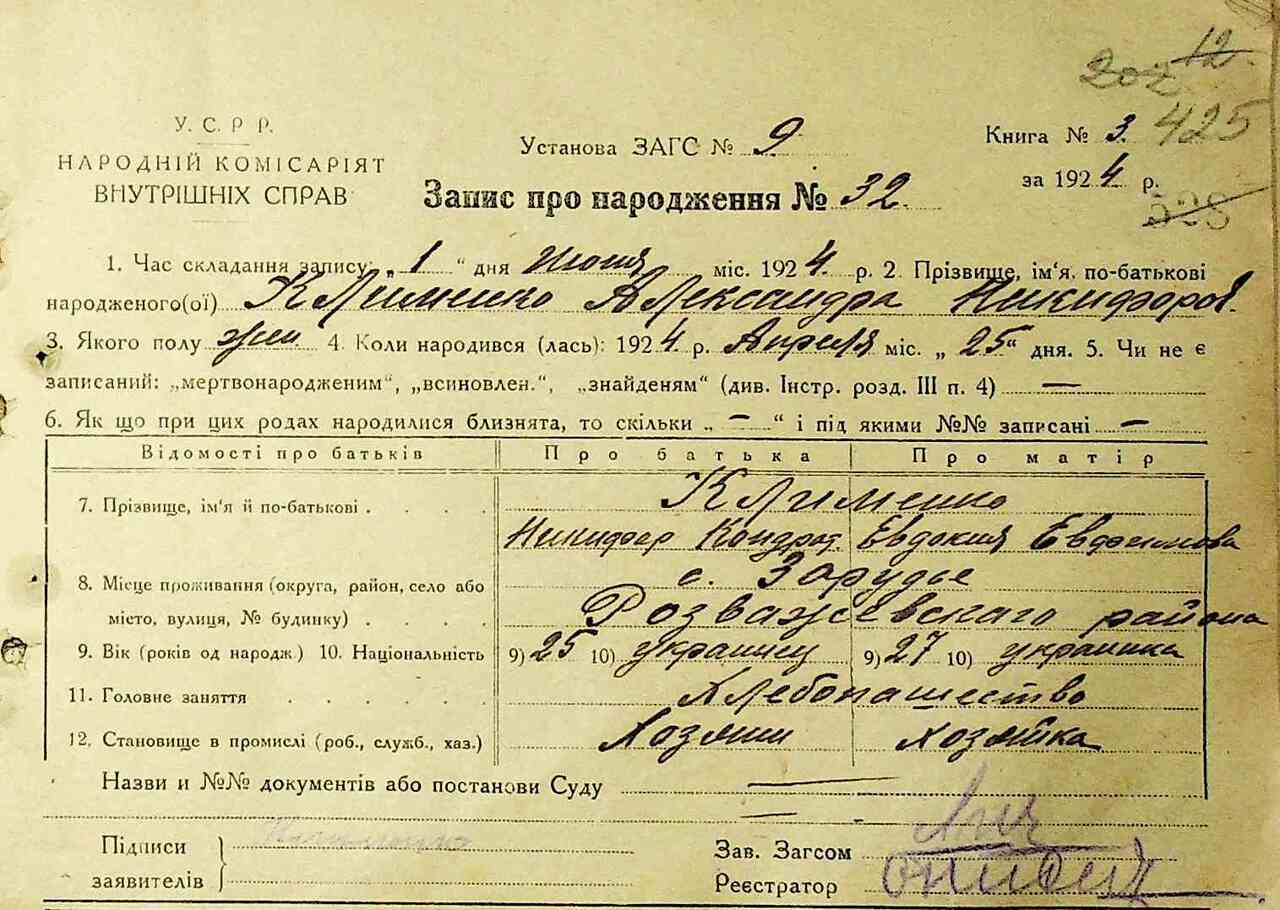 202 12.
425
528
У. С. Р Р.
НАРОДНІЙ КОМІСАРІЯТ
ВНУТРІШНІХ СПРАВ
Установа ЗАГС № 9
Книга № 3.
за 1924 р.
Запис про народження № 32.
1. Час складання запису: „1“ дня Июня міс. 1924. р. 2. Прізвище, ім'я, по-батькові
народженого(ої) Клименко Александра Никифоров.
3. Якого полу жен. 4. Коли народився (лась): 1924 р. Апреля міс. „25“ дня. 5. Чи не є
записаний: „мертвонародженим“, „всиновлен.“, „знайденям“ (див. Інстр. розд. III п. 4) —
6. Як що при цих родах народилися близнята, то скільки „ – “ і під якими №№ записані –
Відомості про батьків Про батька Про матір
7. Прізвище, ім'я й по-батькові . . . . Клименко
Никифер Кондрат. Евдокия Евфимова
8. Місце проживання (округа, район, село або с. Зарудье
місто, вулиця, № будинку) . . . . Розважевскаго района
9. Вік (років од народж.) 10. Національність 9) 25 10) украинец 9) 27 10) украинка
11. Головне заняття . . . . . Хлебопашество
12. Становище в промислі (роб., служб., хаз.) Хозяин Хозяйка
Назви и №№ документів або постанови Суду —
—
Підписи Клименко
заявителів
Зав. Загсом
Реєстратор